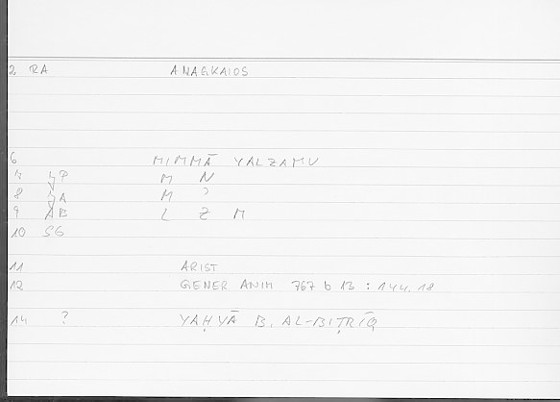 2 RA ANAGKAIOS
6 MIMMĀ YALZAMU
7 JP M N
8 JA M ʾ
9 AB L Z M
10 SG
11 ARIST
12 GENER ANIM 767 b 13 : 144.18
14 ? YAḤYĀ B. AL-BIṬRĪQ